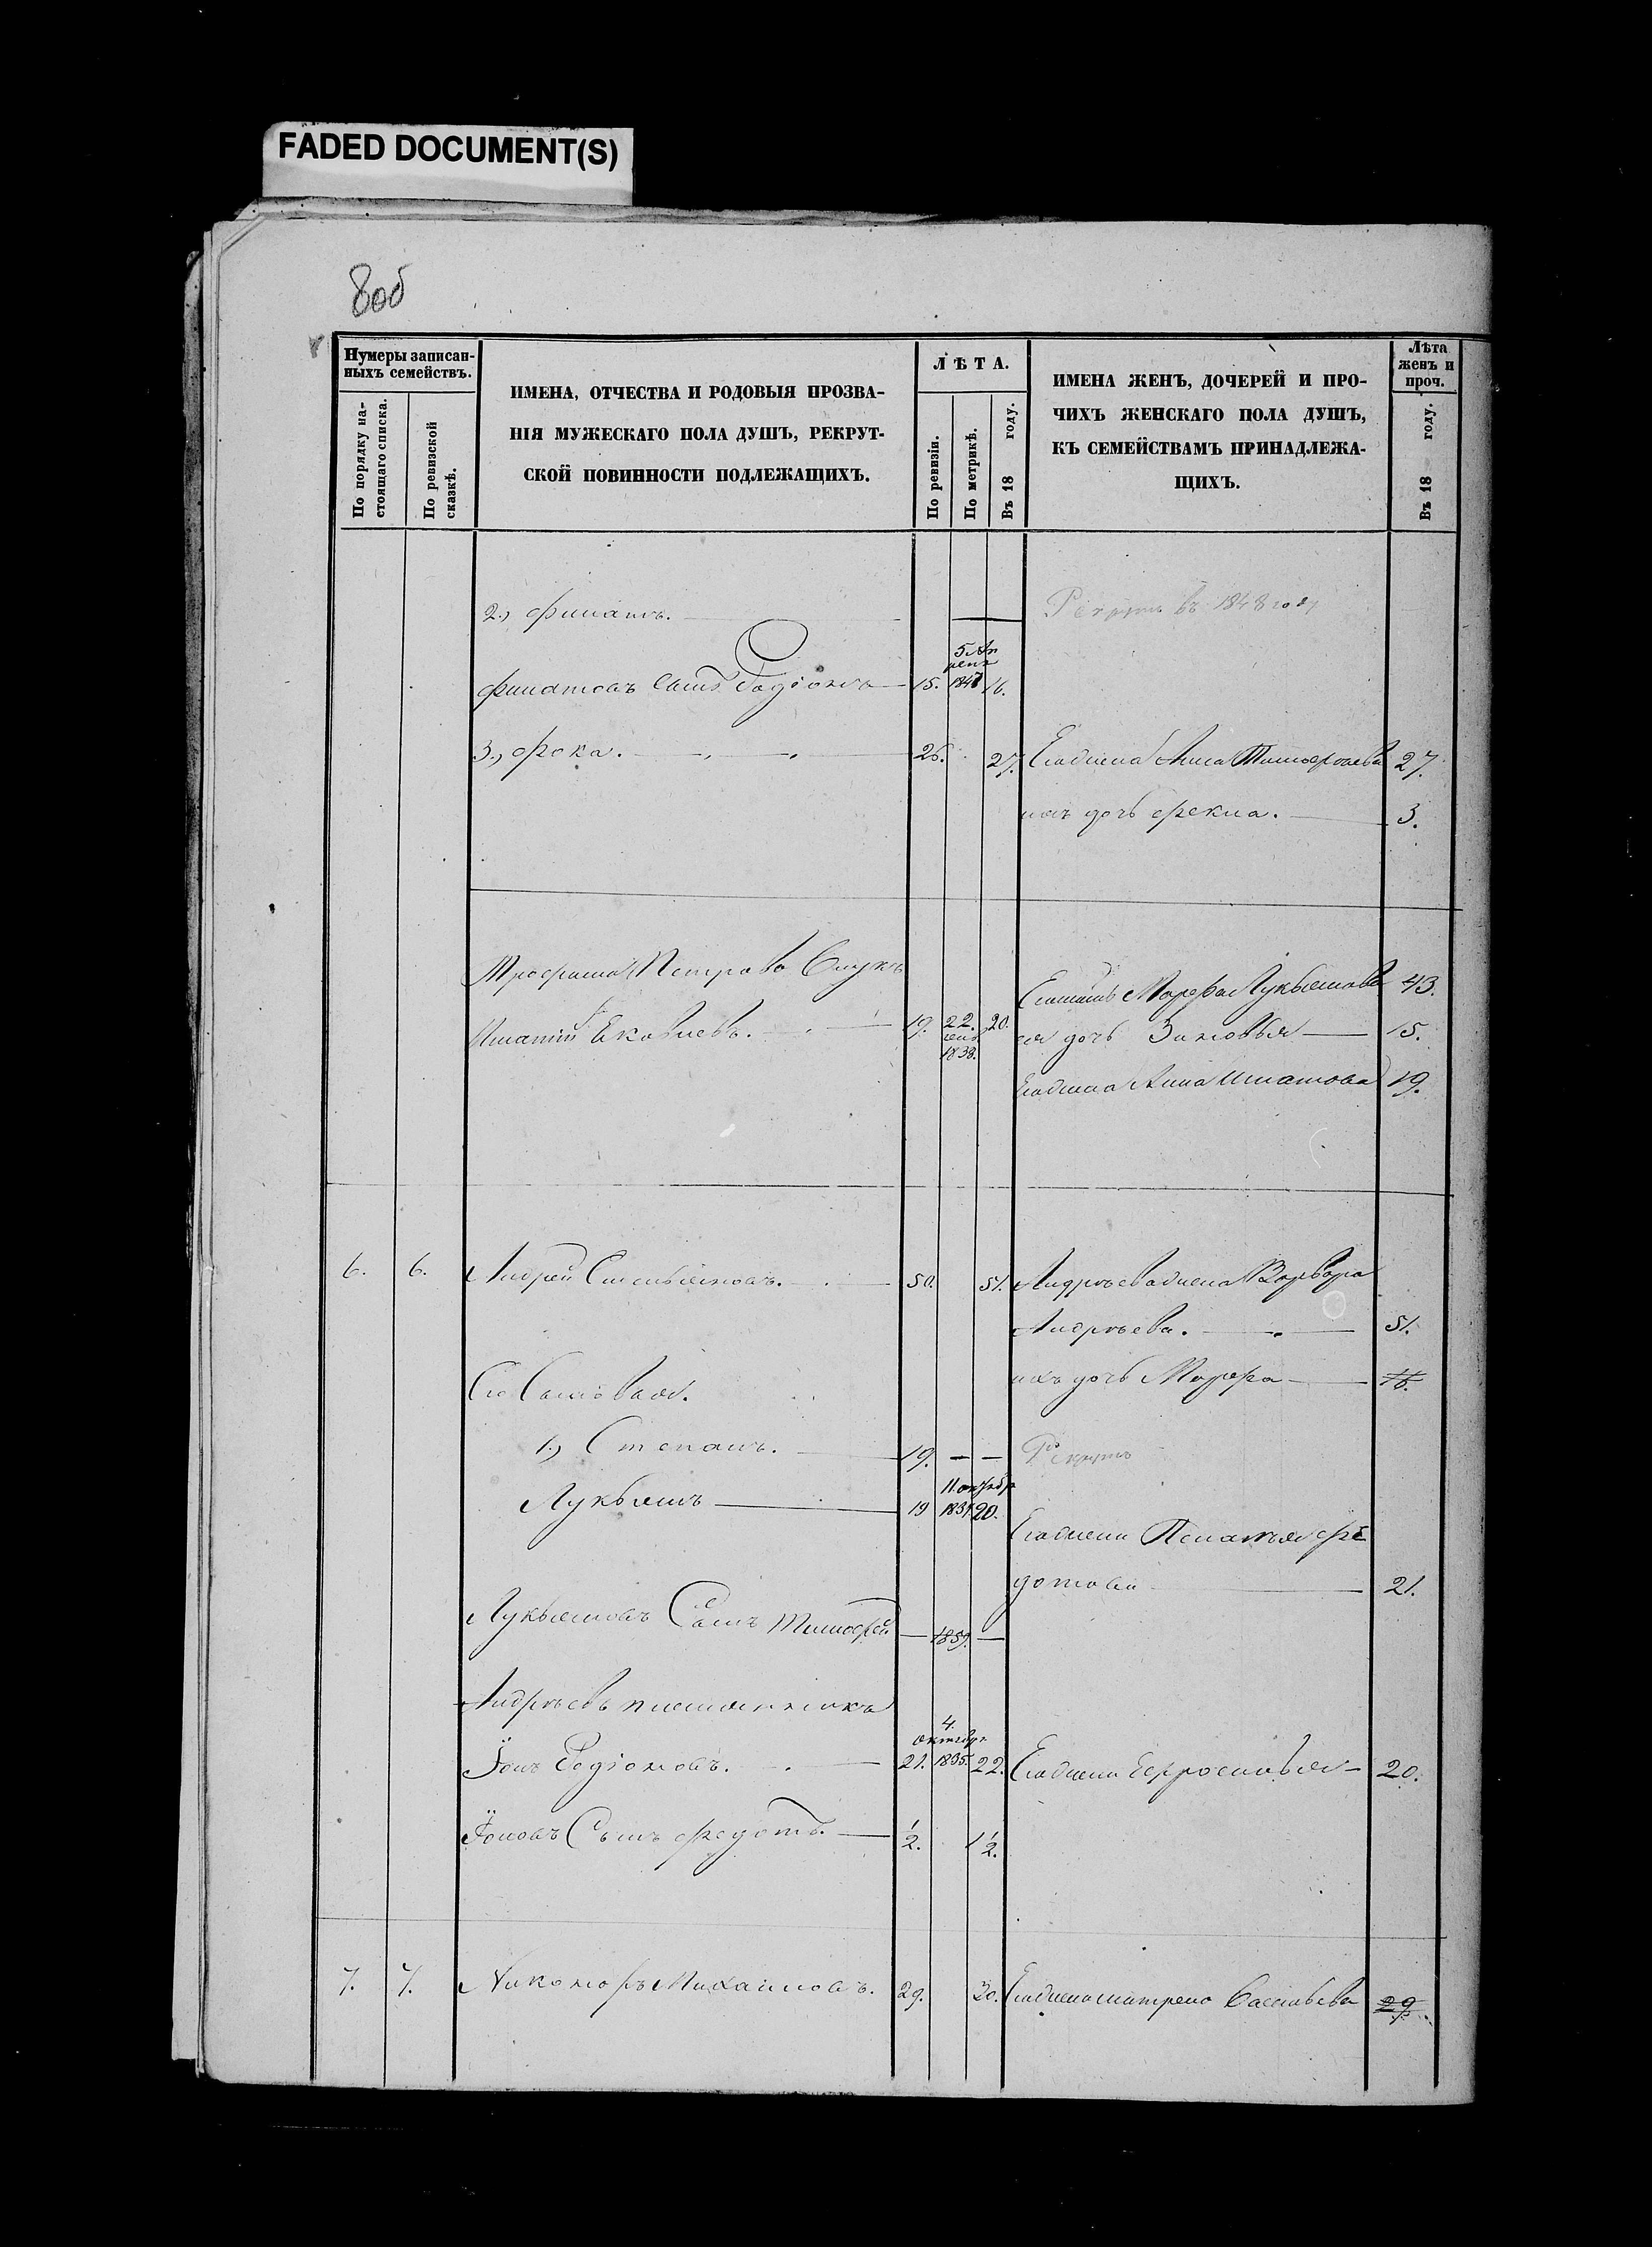 FADED DOCUMENT(S)
8об
Нумеры записан-
ныхъ семействъ.
По порядку на-
стоящаго списка.
По ревизской
сказкѣ.
ИМЕНА, ОТЧЕСТВА И РОДОВЫЯ ПРОЗВА-
НІЯ МУЖЕСКАГО ПОЛА ДУШЪ, РЕКРУТ-
СКОЙ ПОВИННОСТИ ПОДЛЕЖАЩИХЪ.
ЛѢТА.
По ревизіи.
По метрикѣ.
Въ 18 году.
ИМЕНА ЖЕНЪ, ДОЧЕРЕЙ И ПРО-
ЧИХЪ ЖЕНСКАГО ПОЛА ДУШЪ,
КЪ СЕМЕЙСТВАМЪ ПРИНАДЛЕЖА-
ЩИХЪ.
Лѣта
женъ и
проч.
Въ 18 году.
2., Филатъ. Рекрутъ въ 1848 году
Филатовъ Сынъ Родіонъ 15. 16.
3., Фока. 26. 27. Егожена Анна Тимофѣева 27.
ихъ дочь Фекла. 3.
Петрова Внукъ
Игнатій Яковлевъ. 19. 22. 1838. 20.
Егомать Марфа Лукьянова 43.
ея дочь Зиновья 15.
Егожена Анна Игнатова 19.
6. 6. Андрей Емельяновъ. 50. 51. Андрѣева жена Варвара
Андрѣева. 51.
Его Сыновья. ихъ дочь Марфа 16.
1., Степанъ. 19. — — Рекрутъ
Лукьянъ 19 11 октябр 1837. 20.
Егожена Пелагья Фе
дотова 21.
Лукьяновъ Сынъ Тимофей — 1857. —
Андрѣевъ племянникъ
Іонъ Родіоновъ. 21. 4. октябр. 1835. 22. Егожена Ефросинья 20.
Іоновъ Сынъ Федотъ. 1/2. 1 1/2.
7. 7. Никифоръ Михайловъ. 29. 30. Егожена Матрена Васильева 29.